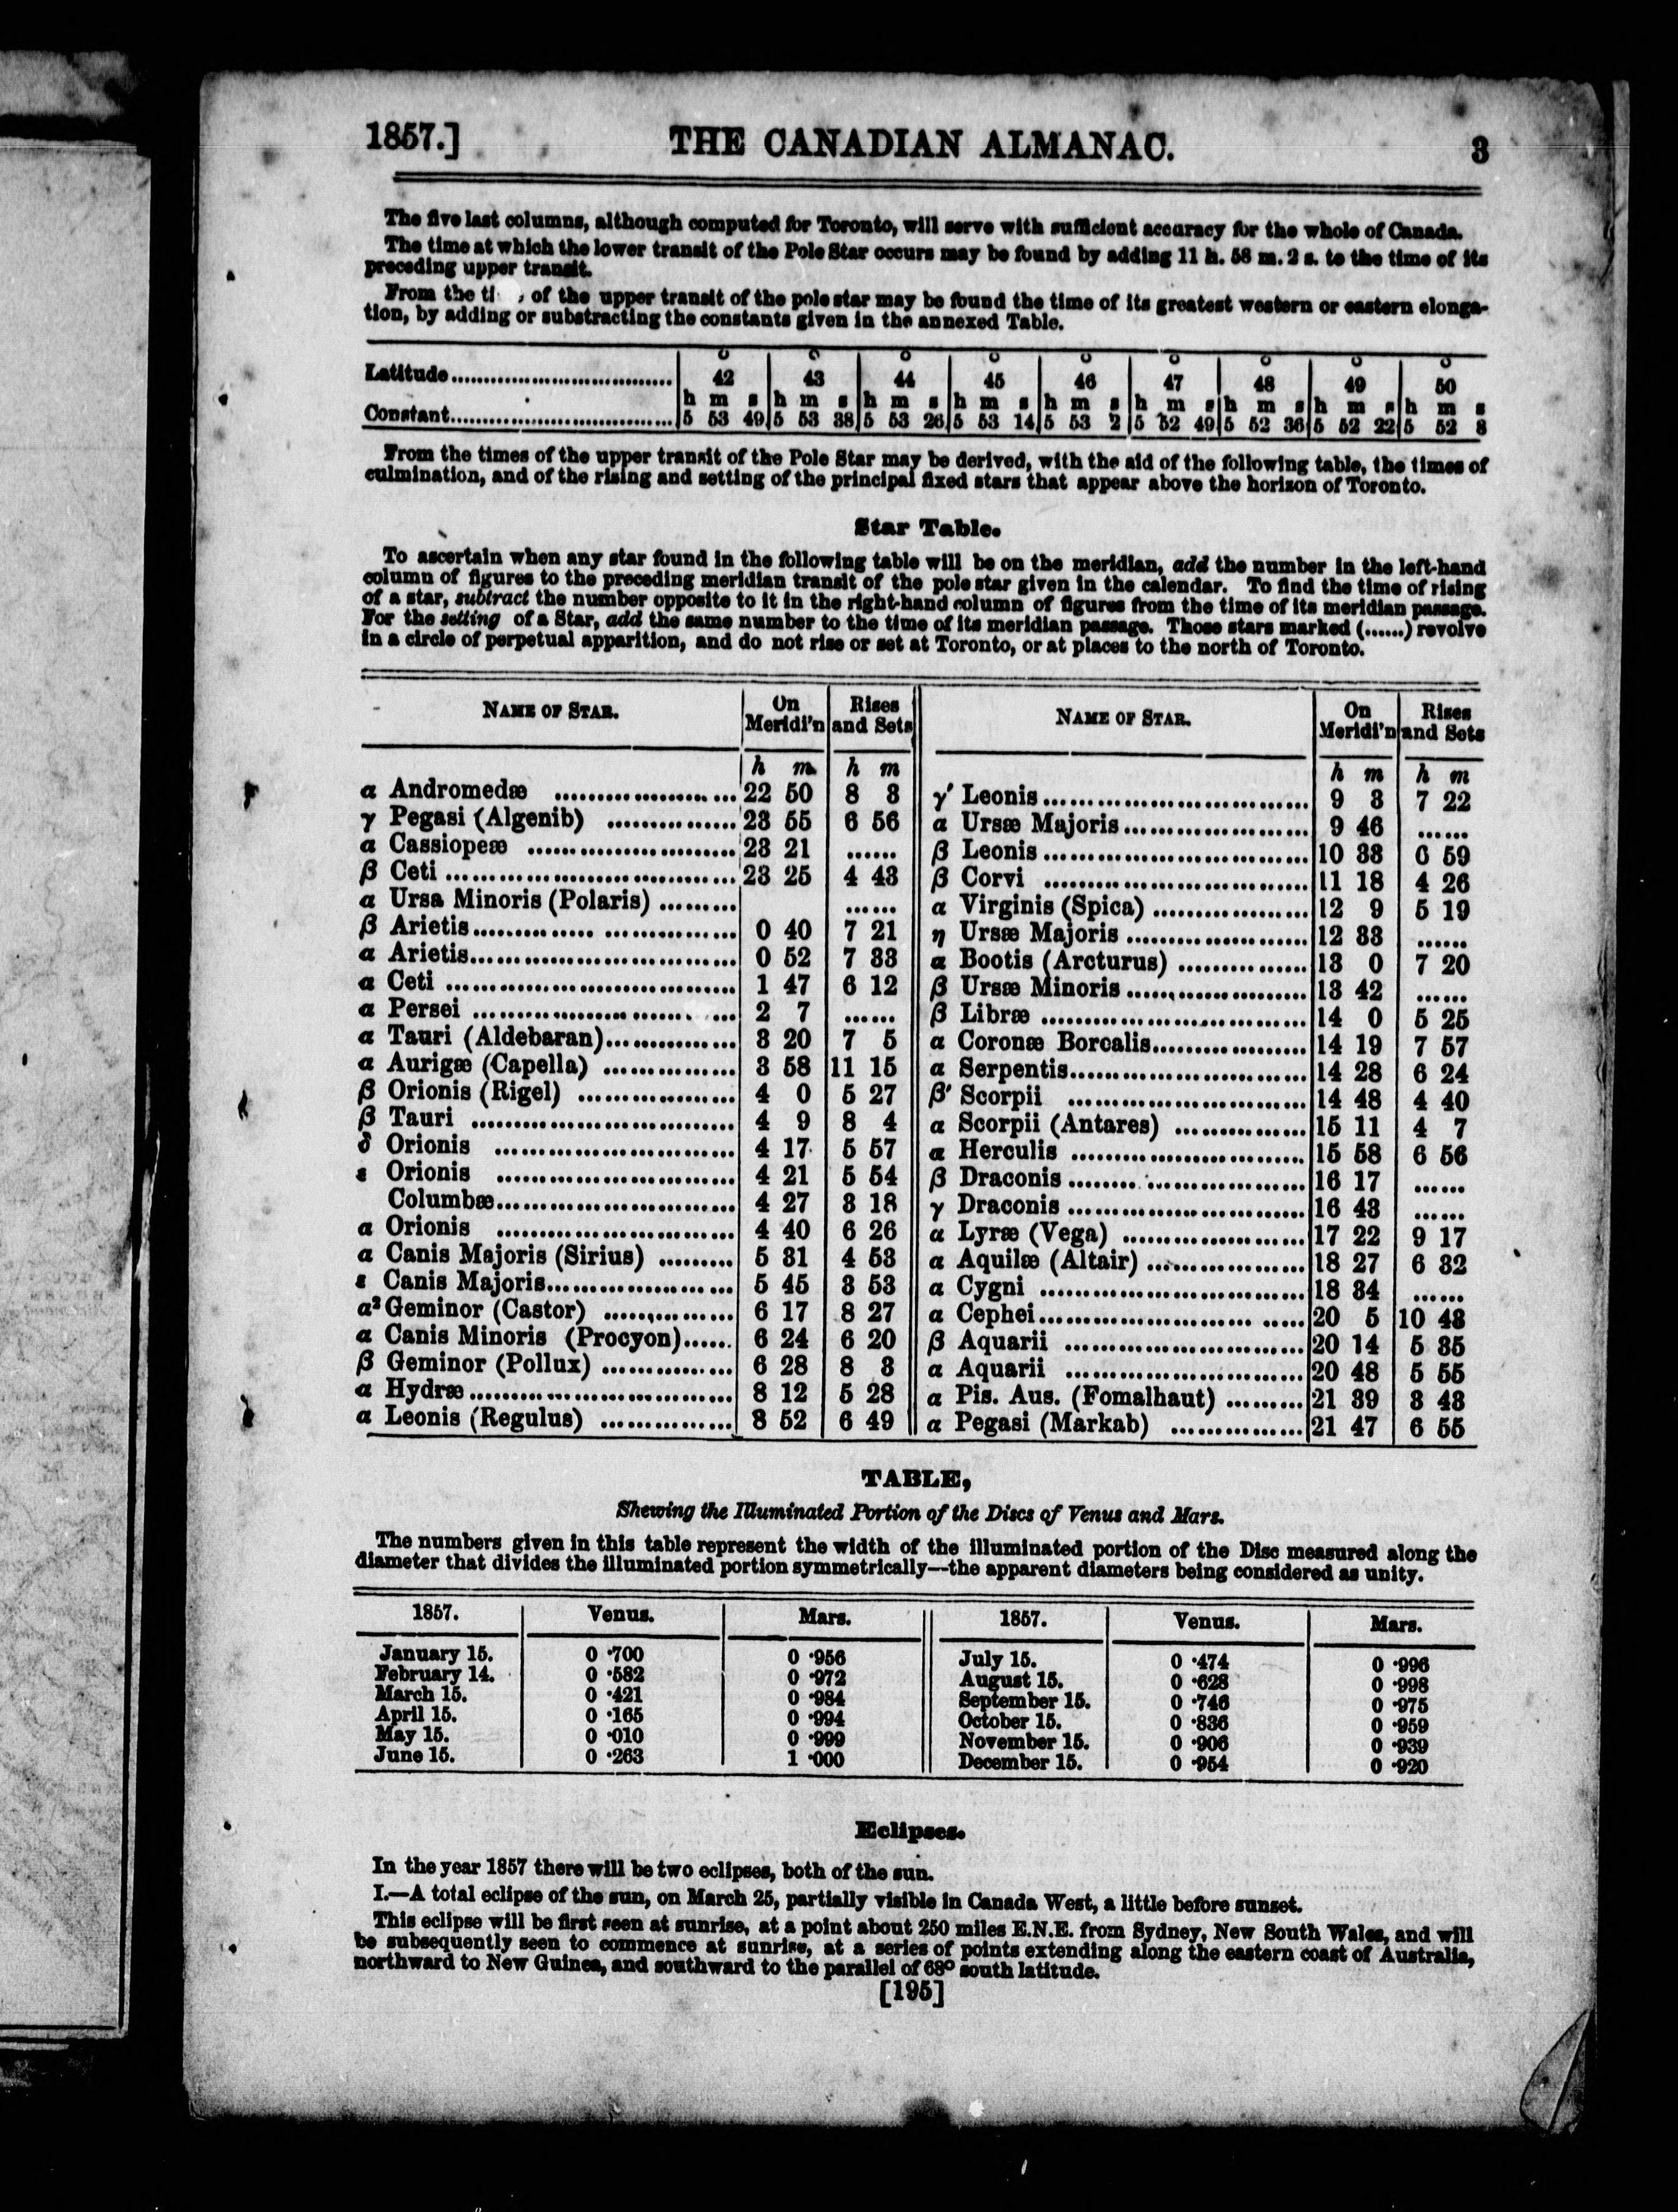 1857.] THE CANADIAN ALMANAC. 3
The five last columns, although computed for Toronto, will serve with sufficient accuracy for the whole of Canada.
The time at which the lower transit of the Pole Star occurs may be found by adding 11 h. 58 m. 2 s. to the time of its
preceding upper transit.
From the of the upper transit of the pole star may be found the time of its greatest western or eastern elonga-
tion, by adding or substracting the constants given in the annexed Table.
Latitude 42 43 44 45 46 47 48 49 50
h m s h m s h m s h m s h m s h m s h m s h m s h m s
Constant 5 53 49 5 53 38 5 53 26 5 53 14 5 53 2 5 52 49 5 52 36 5 52 22 5 52 8
From the times of the upper transit of the Pole Star may be derived, with the aid of the following table, the times of
culmination, and of the rising and setting of the principal fixed stars that appear above the horizon of Toronto.
Star Table.
To ascertain when any star found in the following table will be on the meridian, add the number in the left-hand
column of figures to the preceding meridian transit of the pole star given in the calendar. To find the time of rising
of a star, subtract the number opposite to it in the right-hand column of figures from the time of its meridian passage.
For the setting of a Star, add the same number to the time of its meridian passage. Those stars marked (......) revolve
in a circle of perpetual apparition, and do not rise or set at Toronto, or at places to the north of Toronto.
NAME OF STAR. On Meridi'n Rises and Sets NAME OF STAR. On Meridi'n Rises and Sets
h m h m h m h m
α Andromedæ 22 50 8 3 γ' Leonis 9 3 7 22
γ Pegasi (Algenib) 23 55 6 56 α Ursæ Majoris 9 46 ......
α Cassiopeæ 23 21 ...... β Leonis 10 38 6 59
β Ceti 23 25 4 43 β Corvi 11 18 4 26
α Ursa Minoris (Polaris) ...... α Virginis (Spica) 12 9 5 19
β Arietis 0 40 7 21 η Ursæ Majoris 12 33 ......
α Arietis 0 52 7 33 α Bootis (Arcturus) 13 0 7 20
α Ceti 1 47 6 12 β Ursæ Minoris 13 42 ......
α Persei 2 7 ...... β Libræ 14 0 5 25
α Tauri (Aldebaran) 3 20 7 5 α Coronæ Borealis 14 19 7 57
α Aurigæ (Capella) 3 58 11 15 α Serpentis 14 28 6 24
β Orionis (Rigel) 4 0 5 27 β' Scorpii 14 48 4 40
β Tauri 4 9 8 4 α Scorpii (Antares) 15 11 4 7
δ Orionis 4 17 5 57 α Herculis 15 58 6 56
ε Orionis 4 21 5 54 β Draconis 16 17 ......
Columbæ 4 27 3 18 γ Draconis 16 43 ......
α Orionis 4 40 6 26 α Lyræ (Vega) 17 22 9 17
α Canis Majoris (Sirius) 5 31 4 53 α Aquilæ (Altair) 18 27 6 32
ε Canis Majoris 5 45 3 53 α Cygni 18 34 ......
α² Geminor (Castor) 6 17 8 27 α Cephei 20 5 10 43
α Canis Minoris (Procyon) 6 24 6 20 β Aquarii 20 14 5 35
β Geminor (Pollux) 6 28 8 3 α Aquarii 20 48 5 55
α Hydræ 8 12 5 28 α Pis. Aus. (Fomalhaut) 21 39 3 43
α Leonis (Regulus) 8 52 6 49 α Pegasi (Markab) 21 47 6 55
TABLE,
Shewing the Illuminated Portion of the Discs of Venus and Mars.
The numbers given in this table represent the width of the illuminated portion of the Disc measured along the
diameter that divides the illuminated portion symmetrically—the apparent diameters being considered as unity.
1857. Venus. Mars. 1857. Venus. Mars.
January 15. 0 ·700 0 ·956 July 15. 0 ·474 0 ·996
February 14. 0 ·582 0 ·972 August 15. 0 ·628 0 ·998
March 15. 0 ·421 0 ·984 September 15. 0 ·746 0 ·975
April 15. 0 ·165 0 ·994 October 15. 0 ·836 0 ·959
May 15. 0 ·010 0 ·999 November 15. 0 ·906 0 ·939
June 15. 0 ·263 1 ·000 December 15. 0 ·954 0 ·920
Eclipses.
In the year 1857 there will be two eclipses, both of the sun.
I.—A total eclipse of the sun, on March 25, partially visible in Canada West, a little before sunset.
This eclipse will be first seen at sunrise, at a point about 250 miles E.N.E. from Sydney, New South Wales, and will
be subsequently seen to commence at sunrise, at a series of points extending along the eastern coast of Australia,
northward to New Guinea, and southward to the parallel of 68° south latitude.
[195]